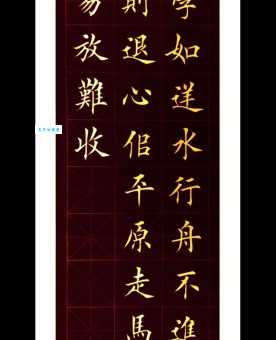 學如逆水行舟不進
則退心佀平原走馬
易放難收